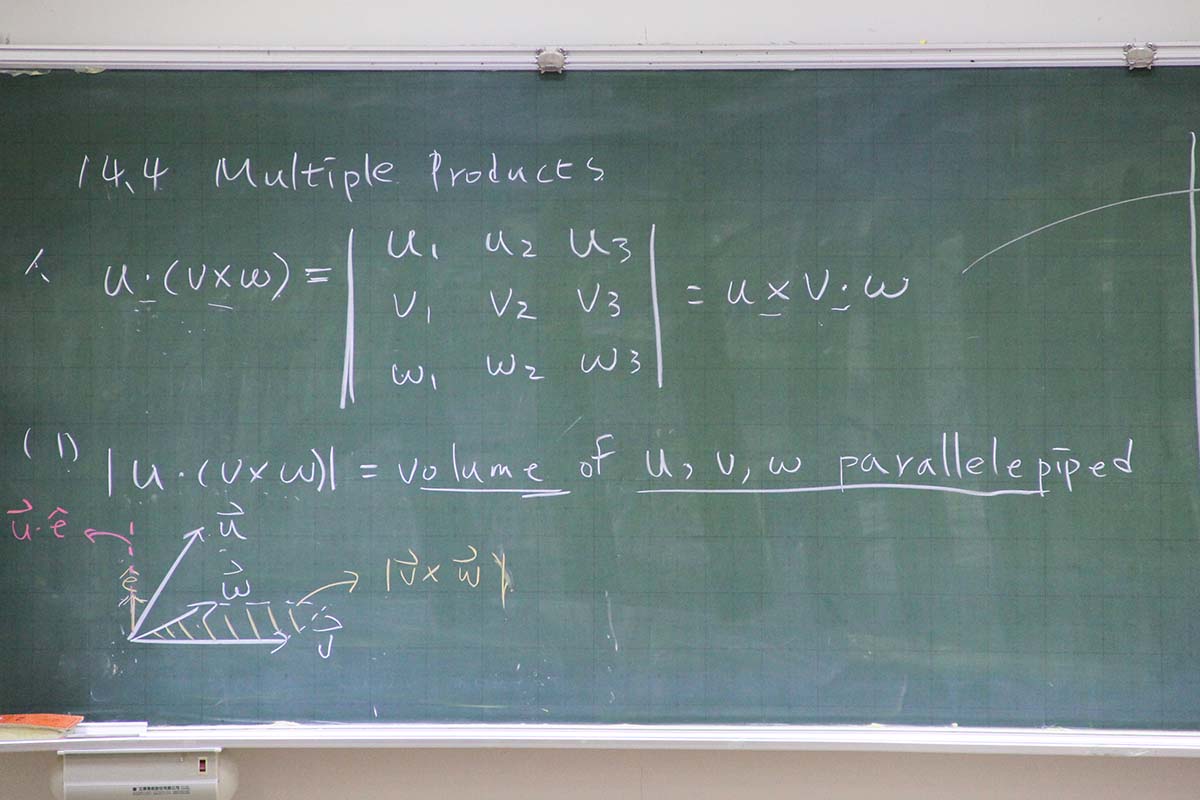 14.4 Multiple Products
u·(v×w) = | u1 u2 u3 | = u×v·w
| v1 v2 v3 |
| w1 w2 w3 |
(1) |u·(v×w)| = volume of u, v, w parallelepiped
u⃗·ê
u⃗
ê
w⃗
|v⃗×w⃗|
v⃗